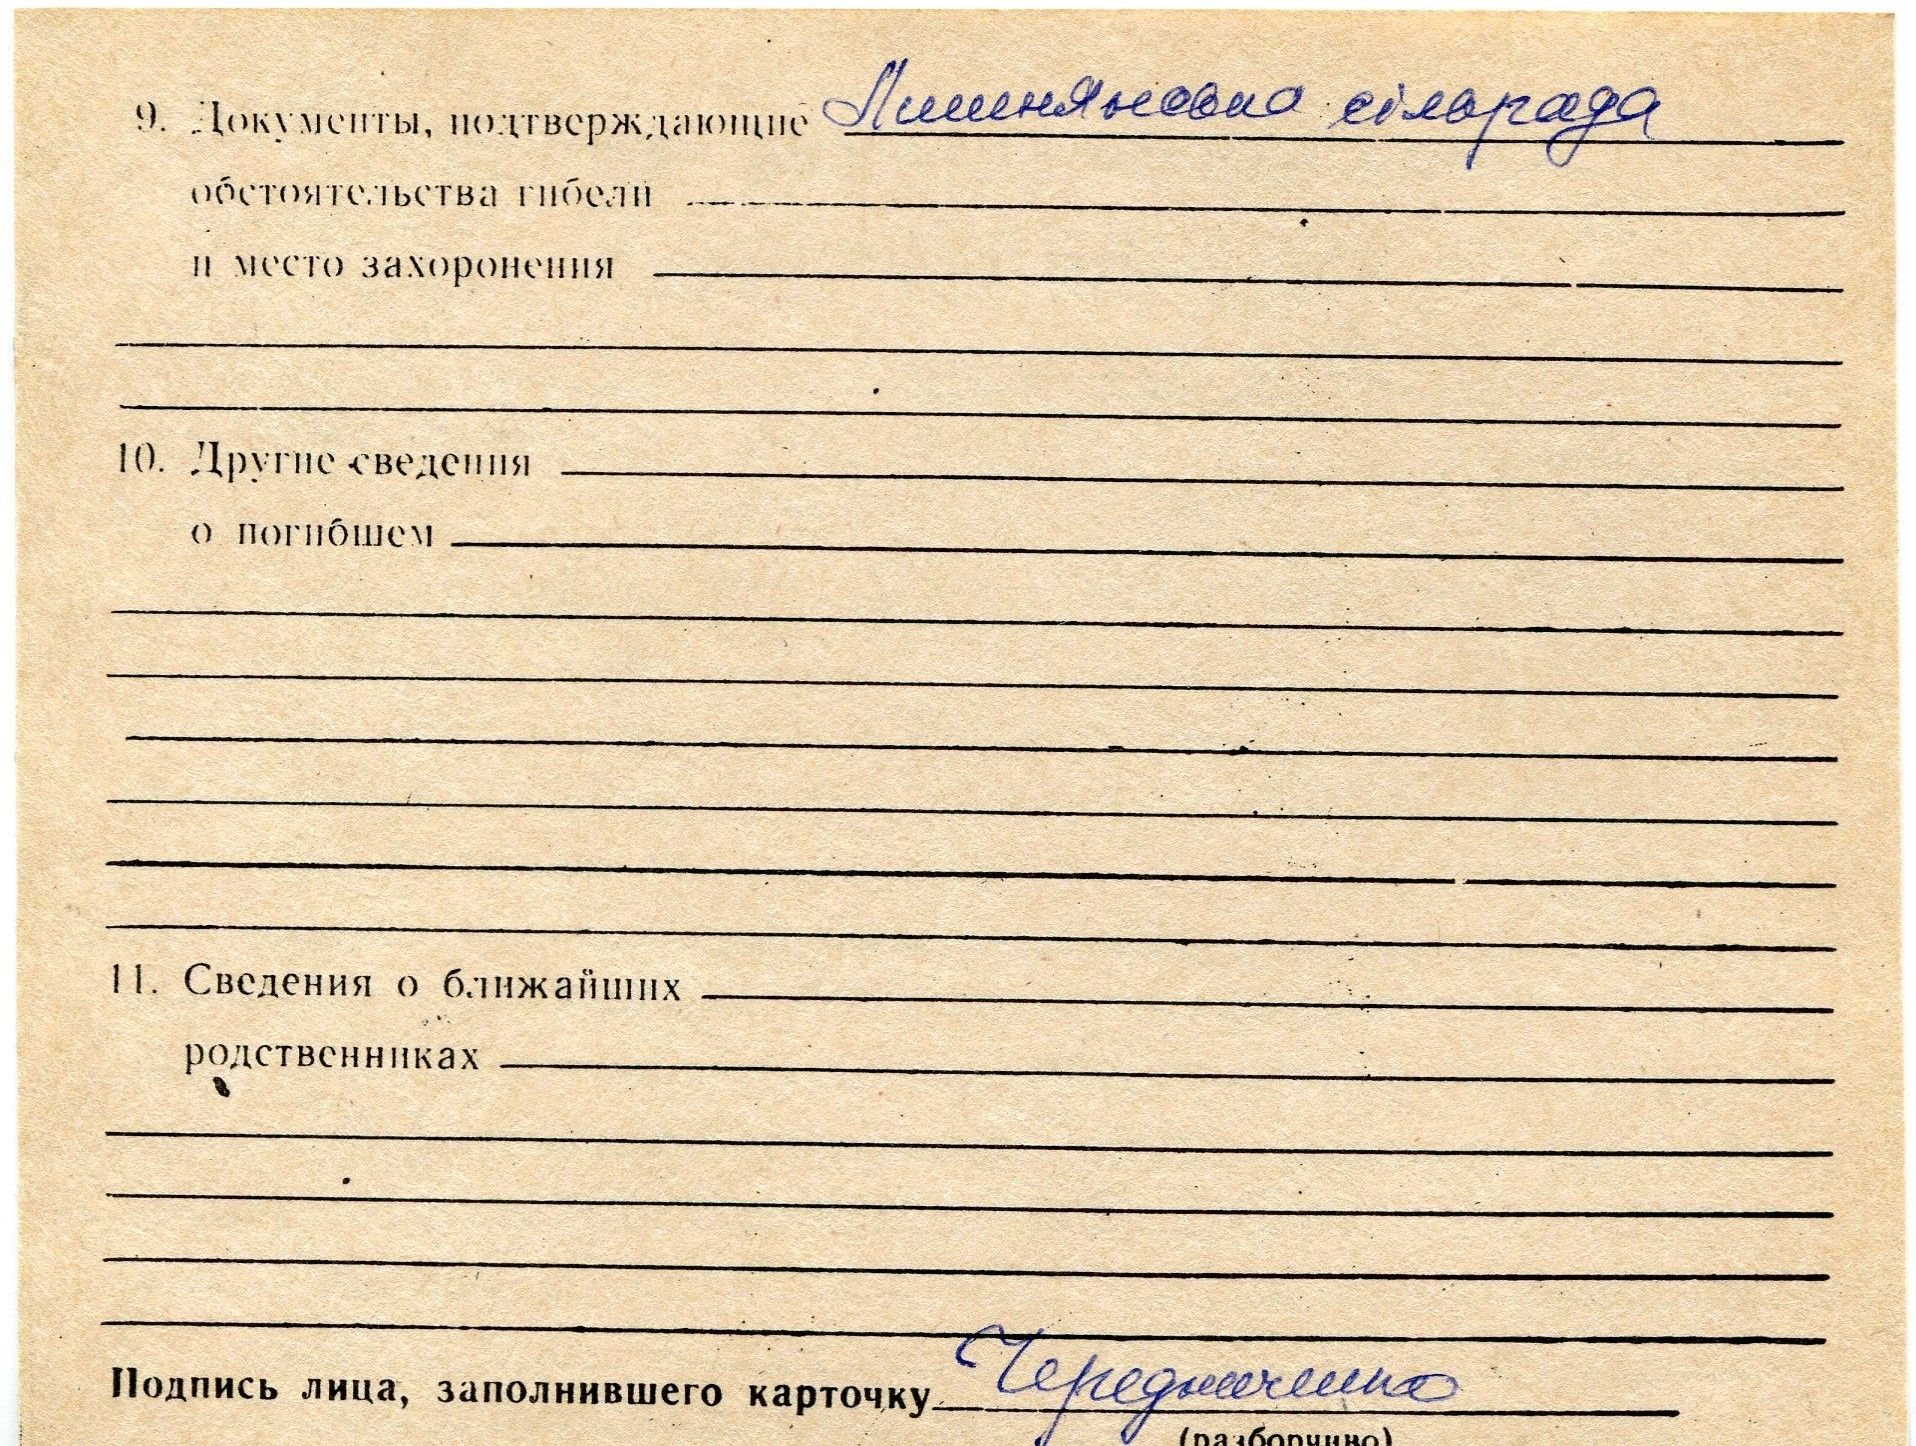 9. Документы, подтверждающие Лишнянська сільрада
обстоятельства гибели
и место захоронения
10. Другие сведения
о погибшем
11. Сведения о ближайших
родственниках
Подпись лица, заполнившего карточку Чередниченко
(разборчиво)